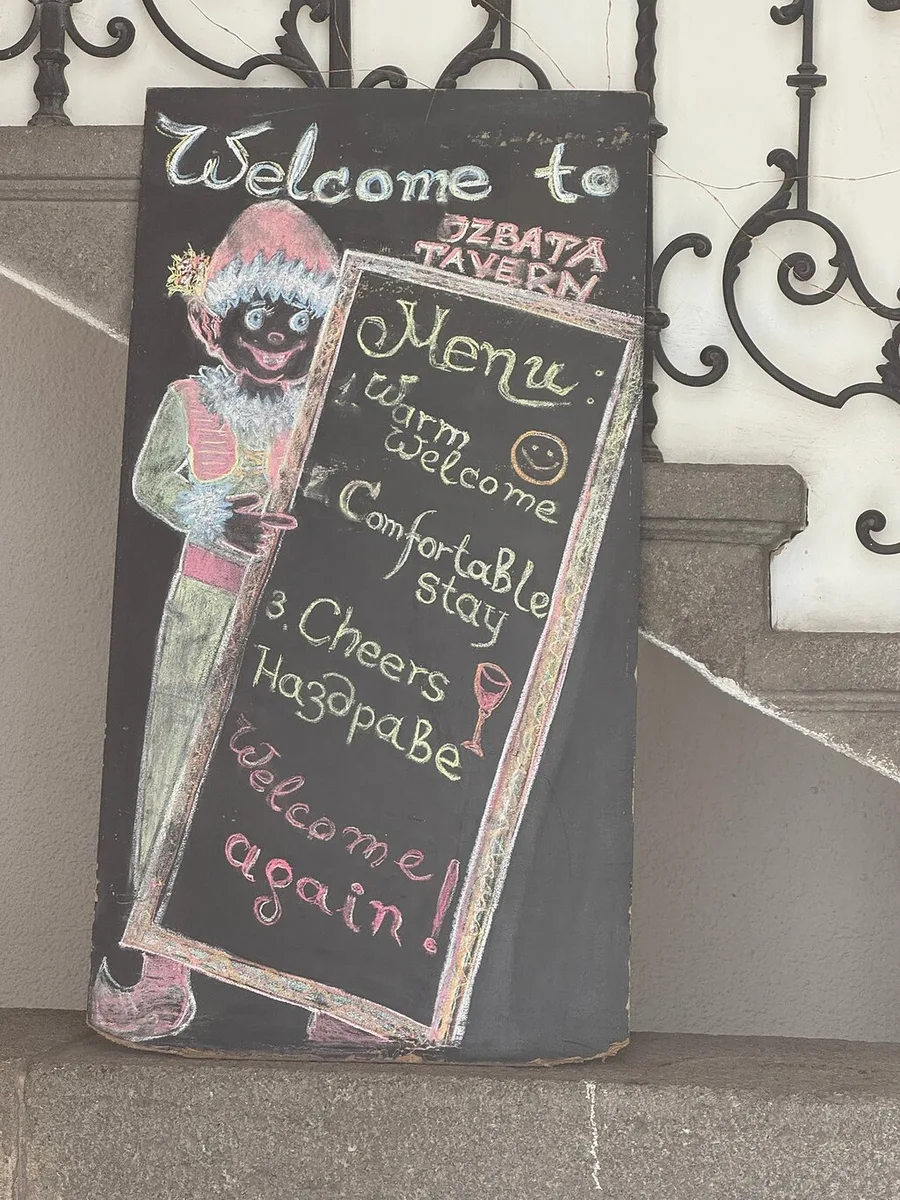 Welcome to
IZBATA
TAVERN
Menu:
1. Warm
welcome
2. Comfortable
stay
3. Cheers
Наздраве
Welcome
again!